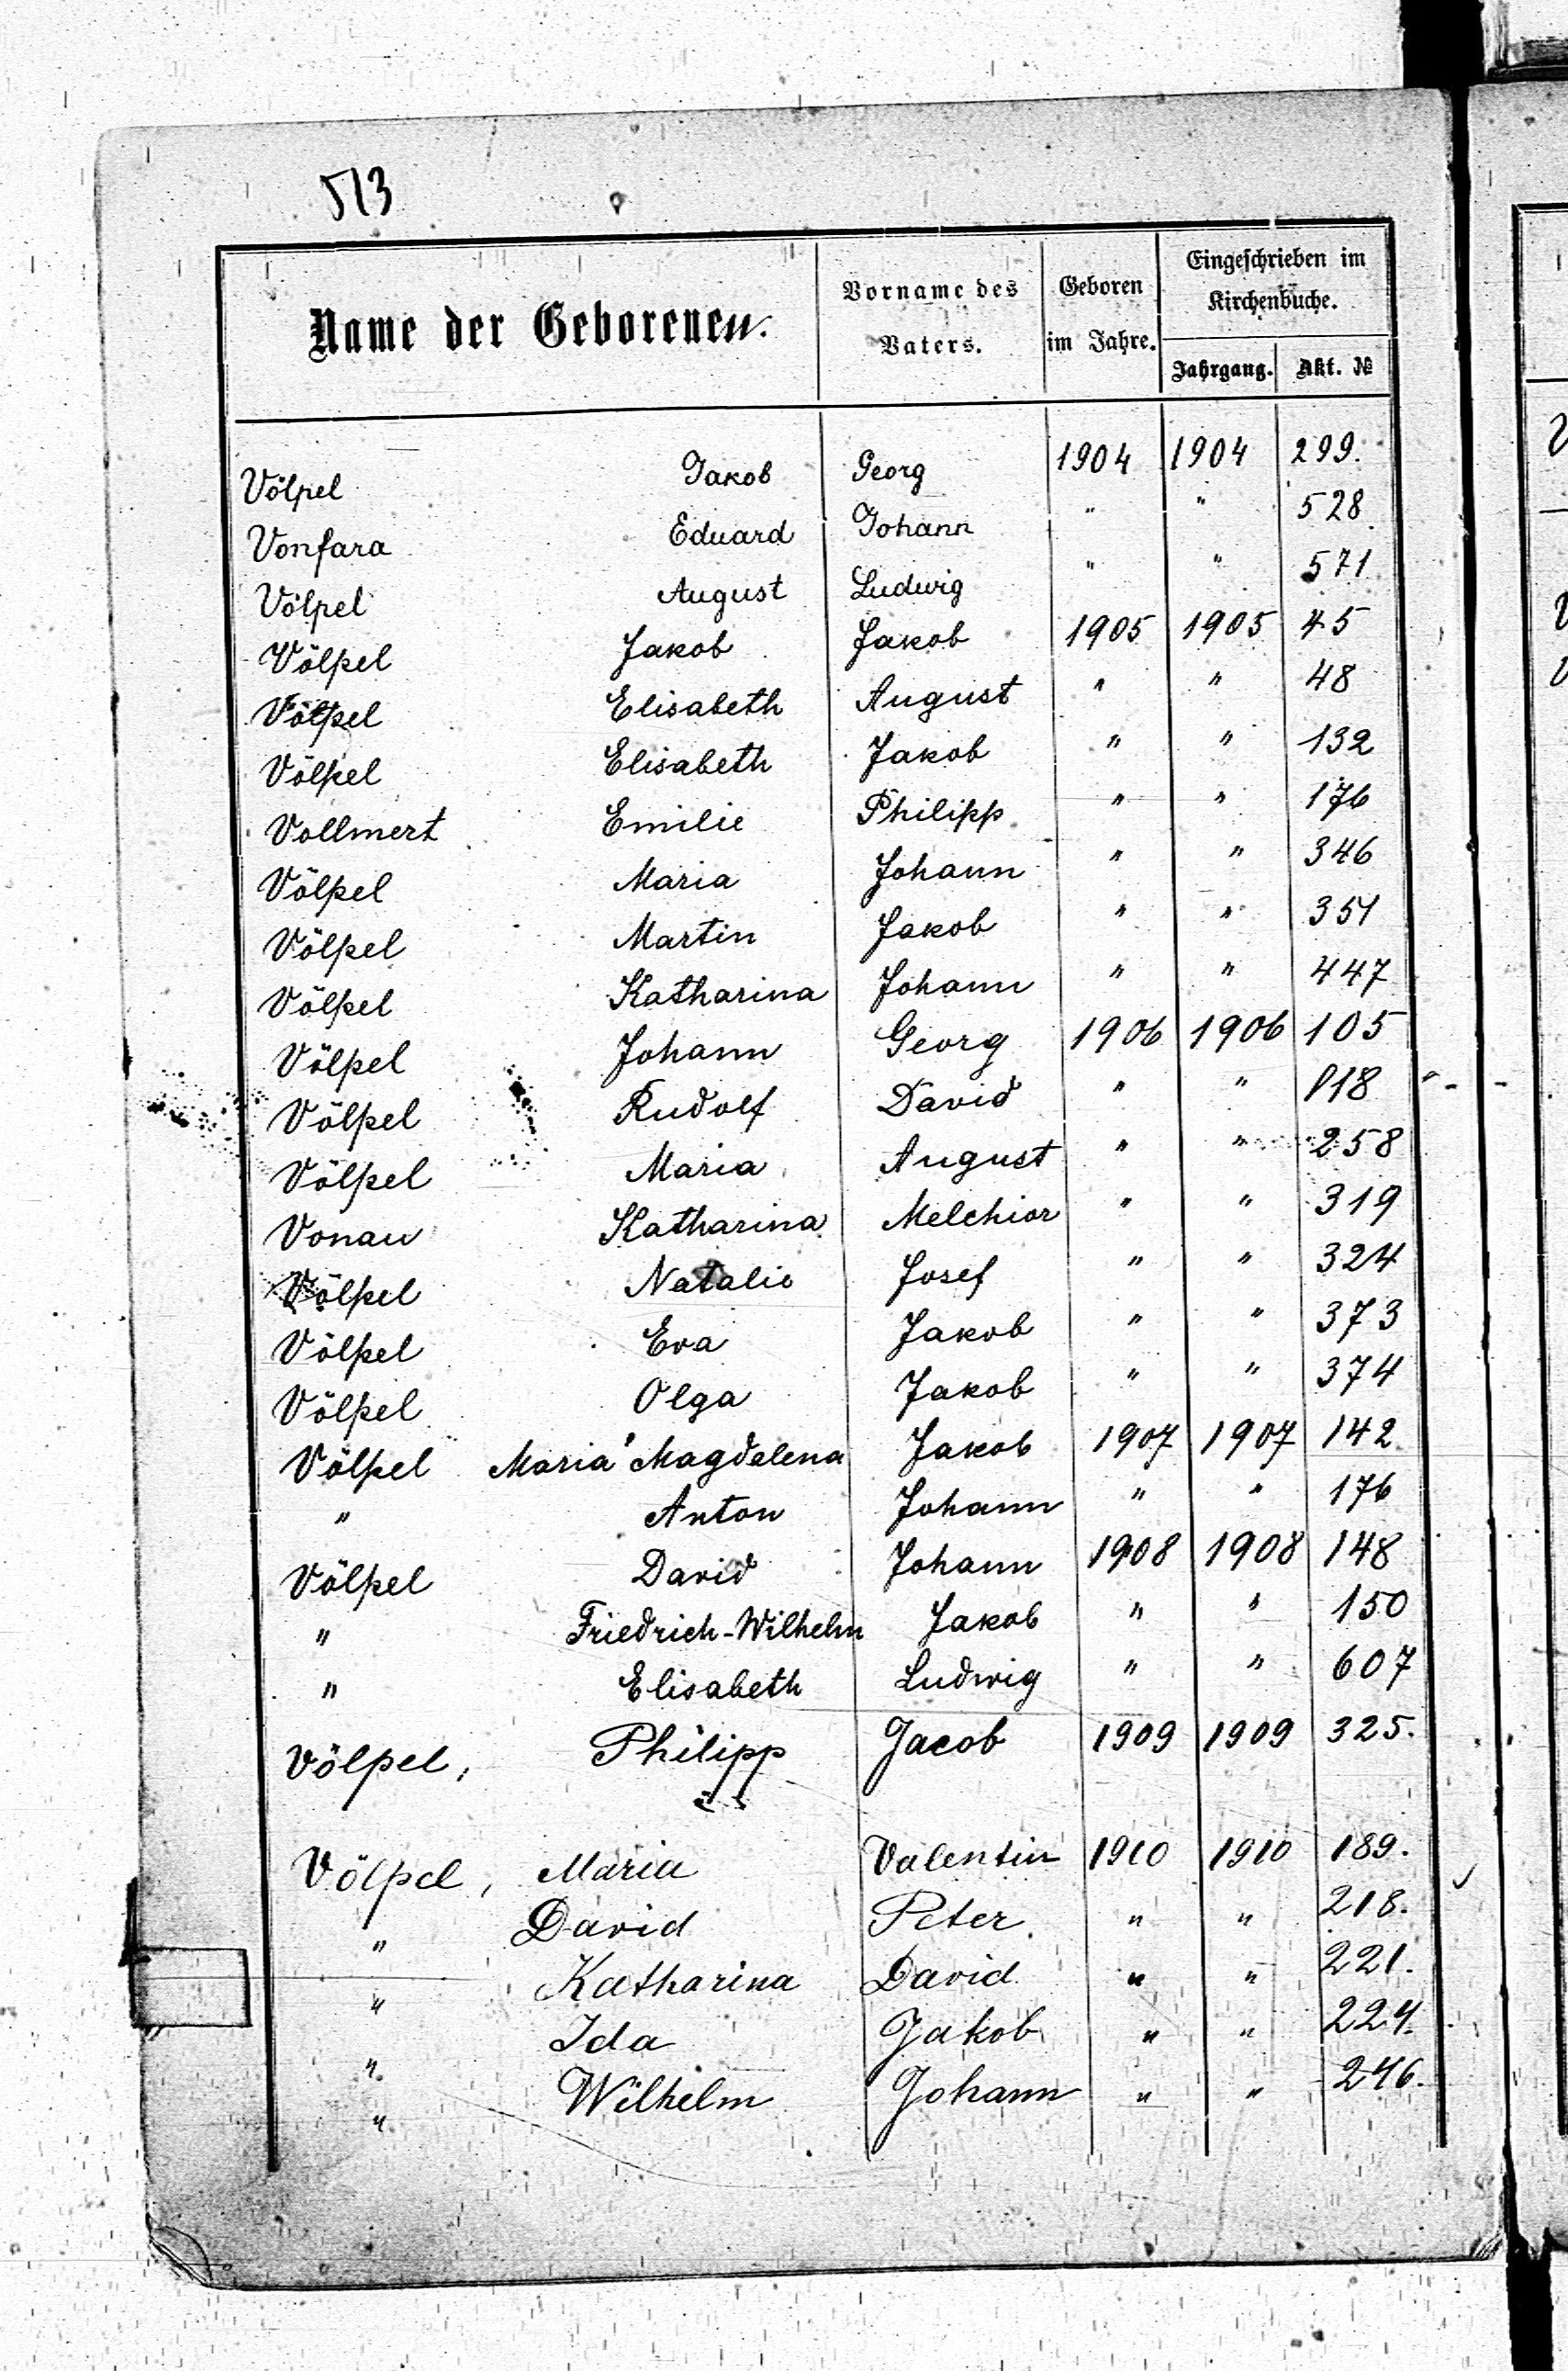 513
Name der Geborenen.
Vorname des Vaters.
Geboren im Jahre.
Eingeschrieben im Kirchenbuche.
Jahrgang. Akt. №
Völpel Jakob Georg 1904 1904 299.
Vonfara Eduard Johann " " 528
Völpel August Ludwig " " 571
Völpel Jakob Jakob 1905 1905 45
Völpel Elisabeth August " " 48
Völpel Elisabeth Jakob " " 132
Vollmert Emilie Philipp " " 176
Völpel Maria Johann " " 346
Völpel Martin Jakob " " 351
Völpel Katharina Johann " " 447
Völpel Johann Georg 1906 1906 105
Völpel Rudolf David " " 118
Völpel Maria August " " 258
Vonau Katharina Melchior " " 319
Völpel Natalie Josef " " 324
Völpel Eva Jakob " " 373
Völpel Olga Jakob " " 374
Völpel Maria Magdalena Jakob 1907 1907 142
" Anton Johann " " 176
Völpel David Johann 1908 1908 148
" Friedrich-Wilhelm Jakob " " 150
" Elisabeth Ludwig " " 607
Völpel, Philipp Jacob 1909 1909 325.
Völpel, Maria Valentin 1910 1910 189.
" David Peter " " 218.
" Katharina David " " 221.
" Ida Jakob " " 224.
" Wilhelm Johann " " 246.